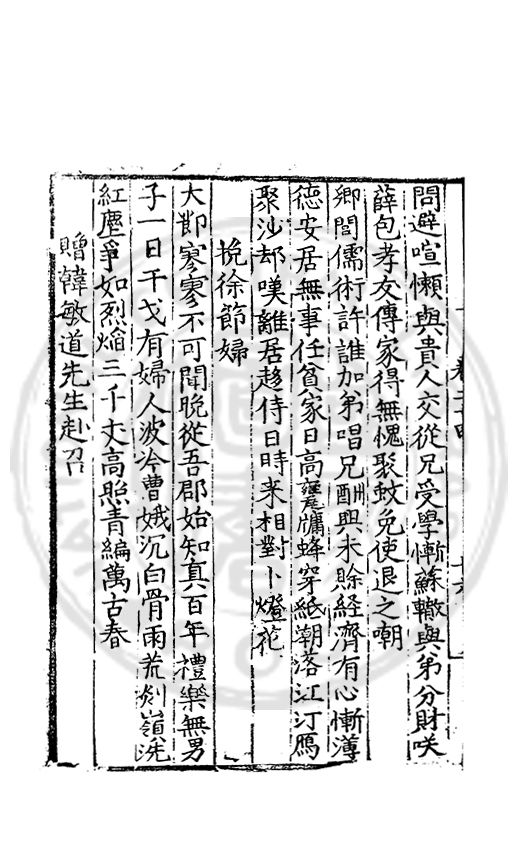 問避喧懶與貴人交從兄受學慚蘇轍與弟分財咲
薛包孝友傳家得無愧聚蚊免使退之嘲
鄉閭儒術許誰加弟唱兄酬興未賒経濟有心慚薄
徳安居無事任貧家日高甕牖蜂穿紙潮落江汀鴈
聚沙却嘆離居趍侍日時来相對卜燈花
挽徐節婦
大節寥寥不可聞晚從吾郡始知真百年禮樂無男
子一日干戈有婦人波冷曹娥沉白骨雨荒剡嶺洗
紅塵爭如烈焰三千丈高照青編萬古春
贈韓敏道先生赴召